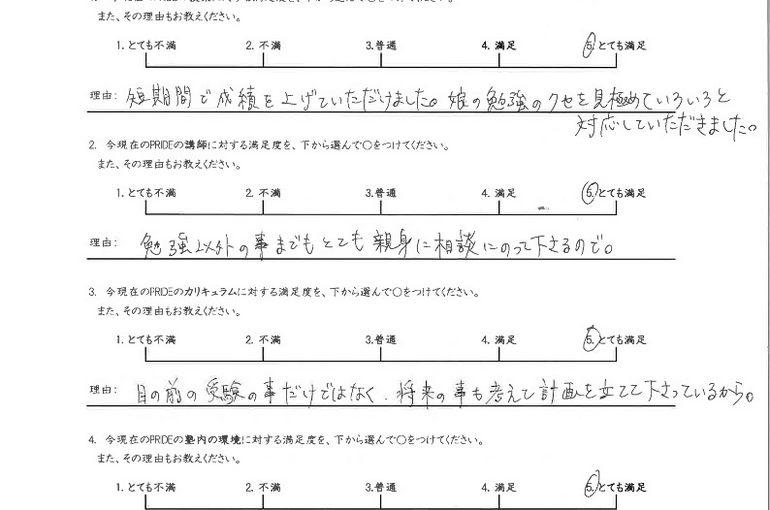 また、その理由もお教えください。
1. とても不満 2. 不満 3.普通 4. 満足 5.とても満足
理由： 短期間で成績を上げていただけました。娘の勉強のクセを見極めていろいろと
対応していただきました。
2. 今現在のPRIDEの講師に対する満足度を、下から選んで〇をつけてください。
また、その理由もお教えください。
1. とても不満 2. 不満 3.普通 4. 満足 5.とても満足
理由： 勉強以外の事までもとても親身に相談にのって下さるので。
3. 今現在のPRIDEのカリキュラムに対する満足度を、下から選んで〇をつけてください。
また、その理由もお教えください。
1. とても不満 2. 不満 3.普通 4. 満足 5.とても満足
理由： 目の前の受験の事だけではなく、将来の事も考えて計画を立てて下さっているから。
4. 今現在のPRIDEの塾内の環境に対する満足度を、下から選んで〇をつけてください。
また、その理由もお教えください。
1. とても不満 2. 不満 3.普通 4. 満足 5.とても満足